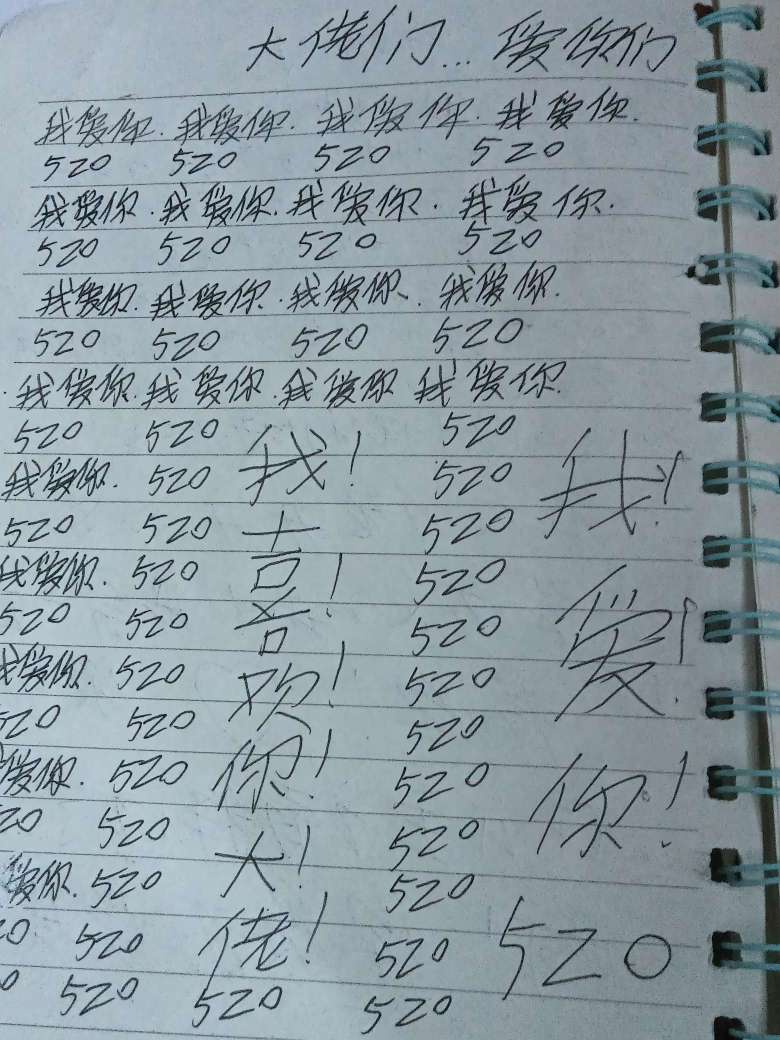 大佬们...爱你们
我爱你.我爱你.我爱你.我爱你.
520 520 520 520
我爱你.我爱你.我爱你.我爱你.
520 520 520 520
我爱你.我爱你.我爱你.我爱你.
520 520 520 520
我爱你.我爱你.我爱你 我爱你.
520 520 520
我爱你. 520 520
520 520 520
我爱你. 520 520
520 520 520
我爱你. 520 520
520 520 520
爱你. 520 520
20 520 520
爱你. 520 520
520 520
520 520 520
我!喜!欢!你!大!佬!
我!爱!你!
520